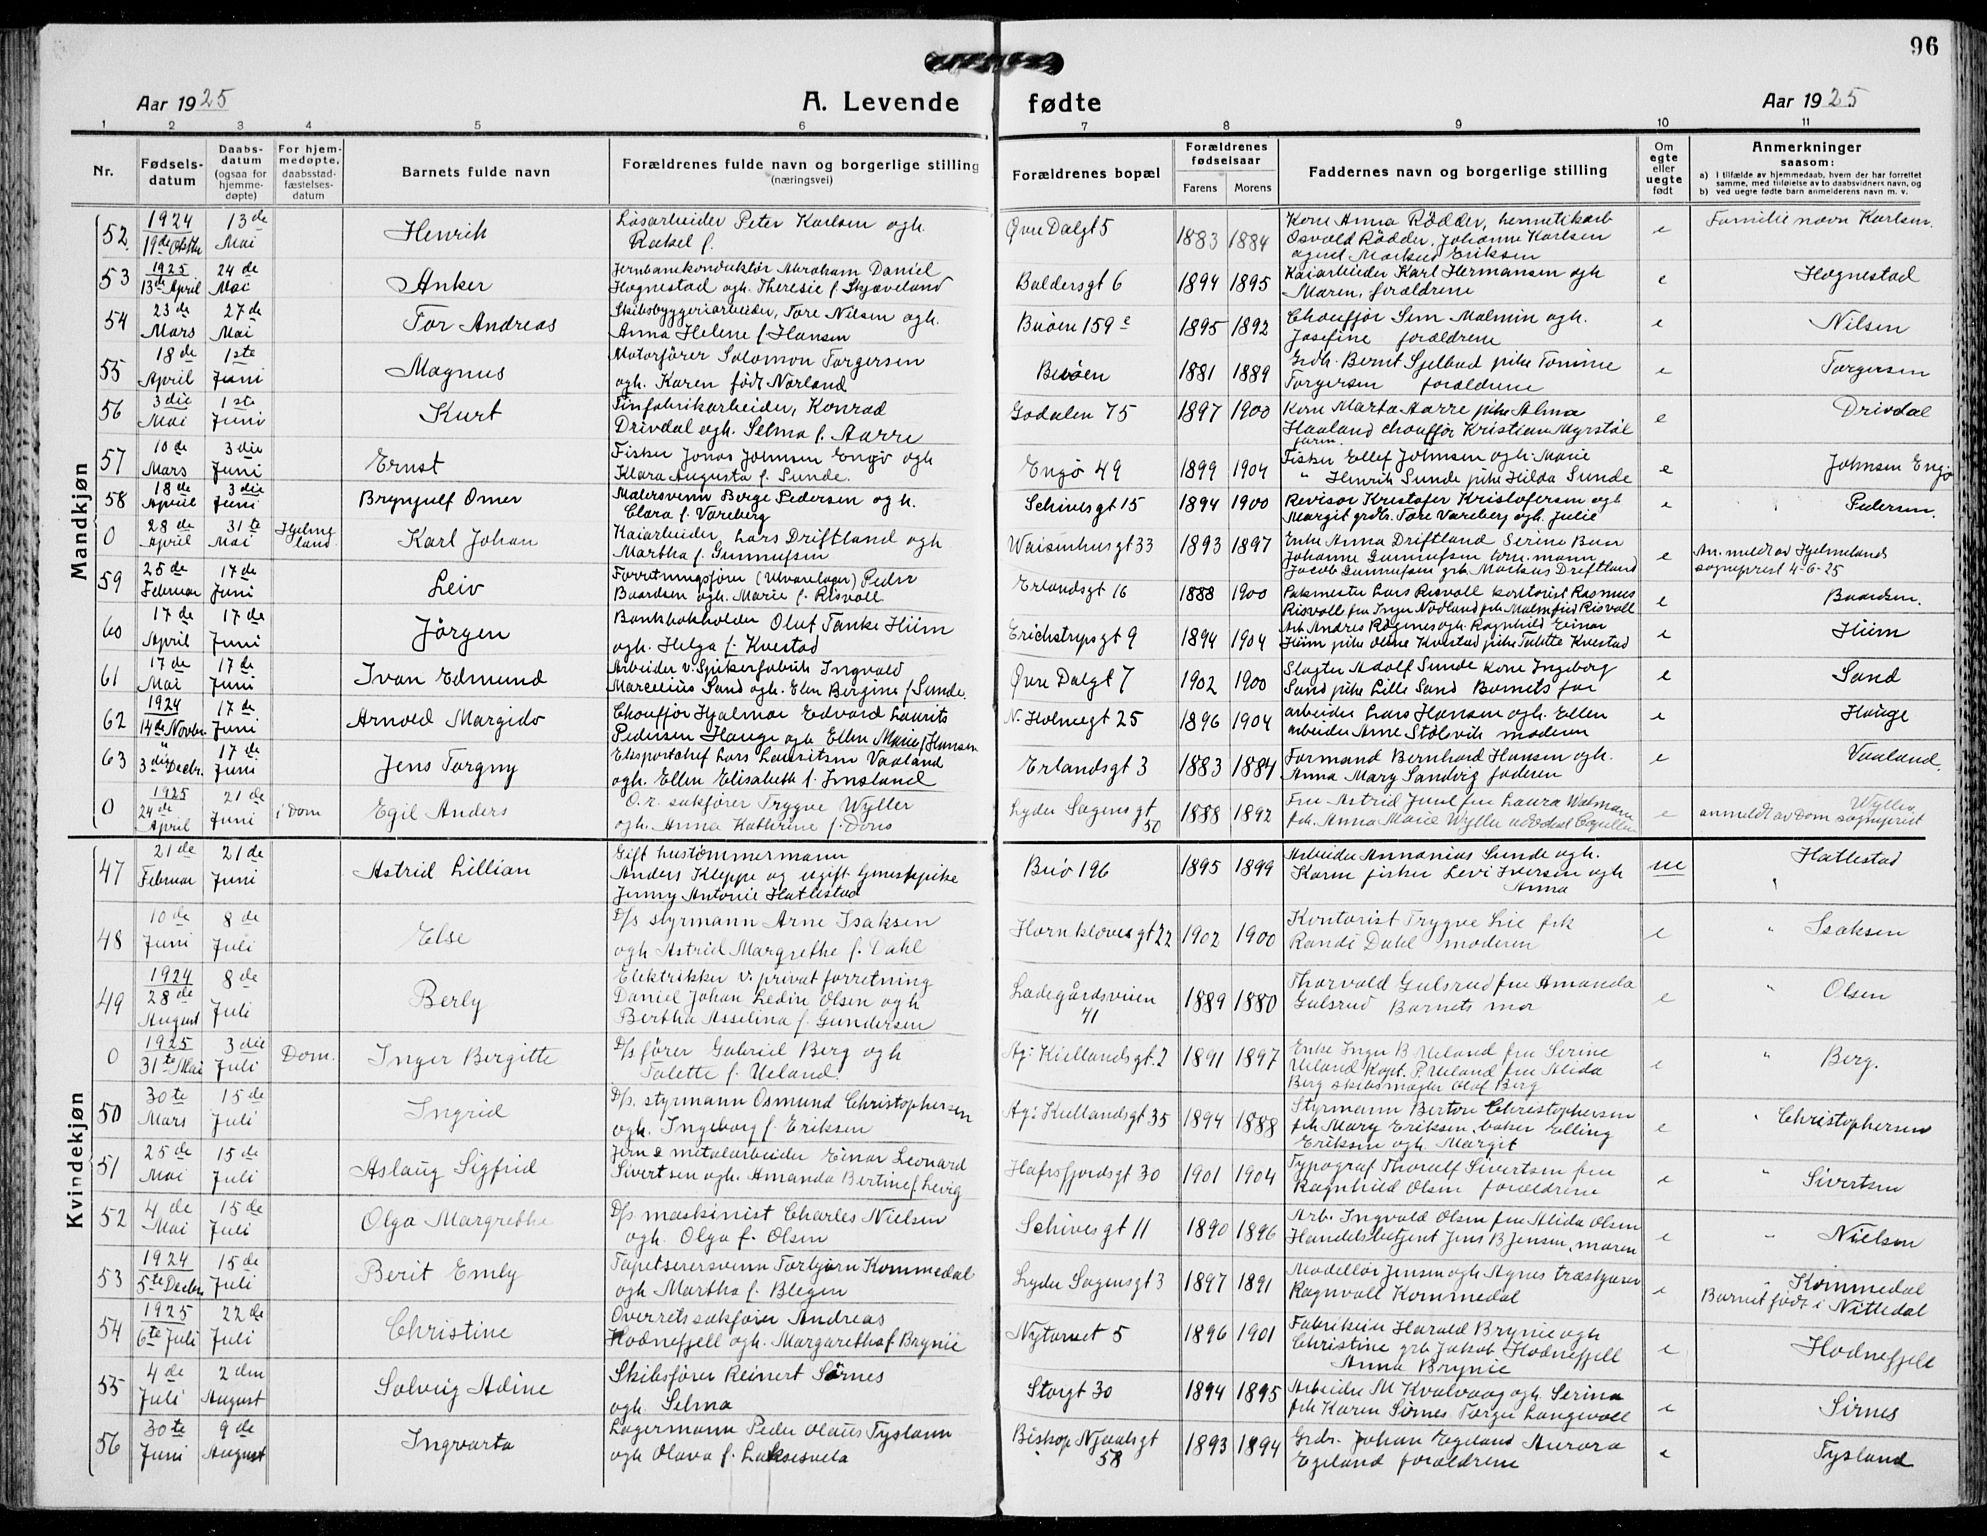 96
Aar 1925
A. Levende fødte
Aar 1925
1 2 3 4 5 6 7 8 9 10 11
Nr. Fødselsdatum Daabsdatum (ogsaa for hjemmedøpte) For hjemmedøpte, daabsstadfæstelsesdatum Barnets fulde navn Forældrenes fulde navn og borgerlige stilling (næringsvei) Forældrenes bopæl Forældrenes fødselsaar Farens Morens Faddernes navn og borgerlige stilling Om egte eller uegte født Anmerkninger saasom:
a) i tilfælde av hjemmedaab, hvem der har forrettet samme, med tilføielse av to daabsvidners navn, og
b) ved uegte fødte barn anmelderens navn m. v.
Mandkjøn
52. 1924 19de Oktbr 13de Mai Henrik Løsarbeider Peter Karlsen ogh. Rakel f. Øvre Dalgt 5 1883 1884 Kone Anna Rødder, hermetikarb Osvald Rødder, Johanne Karlsen agent Markus Eriksen e Familie navn Karlsen
53 1925 13de April 24de Mai Anker Jernbanekonduktør Abraham Daniel Hognestad ogh. Theresie f Skjæveland Baldersgt 6 1894 1895 Kaiarbeider Karl Hermansen ogh Maren, forældrene e Hognestad
54 23de Mars 27de Mai Tor Andreas Skibsbyggeriarbeider, Tore Nilsen ogh. Anna Helene f Hansen Buøen 159c 1895 1892 Chouffør Sem Malmin ogh. Josefine forældrene e Nilsen
55 18de April 1ste Juni Magnus Motorfører Solomon Torgersen ogh. Karen født Nørland Buøen 1881 1889 Grdb. Bernt Sjelbred pike Tomine Torgersen forældrene e Torgersen
56 3die Mai 1ste Juni Kurt Tinfabrikarbeider, Konrad Drivdal ogh. Selma f. Aarre Godalen 75 1897 1900 Kone Marta Aarre pike Alma Haaland chouffør Kristian Myrstøl e Drivdal
57 10de Mars 3die Juni Ernst Fisker Jonas Johnsen Engø ogh Klara Augusta f. Sunde. Engø 49 1899 1904 Fisker Ellef Johnsen ogh Marie " Henrik Sunde pike Hilda Sunde e Johnsen Engø
58 18de April 3die Juni Brynjulf Omer Malersvenn Børge Pedersen ogh. Clara f. Vareberg Schivesgt 15 1894 1900 Revisor Kristofer Kristofersen ogh Margit grdb. Tore Vareberg ogh. Julie e Pedersen.
0 28de April 31te Mai Hjelmeland Karl Johan Kaiarbeider Lars Driftland ogh Martha f. Gunnufsen Waisenhusgt 33 1893 1897 Enke Anna Driftland Serine Buer Johanne Gunnufsen mann Jacob Gunnufsen grb. Markus Driftland e An. meldt av Hjelmelands sogneprest 4-6-25
59 25de Februar 17de Juni Leiv Forretningsfører (Ulvarelager) Peder Baardsen ogh. Marie f. Risvoll Erlandsgt 16 1888 1900 Pakmester Lars Risvoll kontorist Rasmus Risvoll fru Inger Nødland frk Malmfrid Risvoll e Baardsen.
60 17de April 17de Juni Jørgen Bankbokholder Oluf Tanke Hiim ogh. Helga f. Kvestad Erichstrupsgt 9 1894 1904 Arb Andres Røgnes ogh. Ragnhild Einar Hiim pike Oline Kvestad pike Talette Kvestad e Hiim
61 17de Mai 17de Juni Ivan Edmund Arbeider v. Spikerfabrik Ingvald Marcelius Sand ogh. Elen Bergine f Sunde. Øvre Dalgt 7 1902 1900 Slagter Adolf Sunde kone Ingeborg Sand pike Lille Sand Barnets far e Sand
62 1924 14de Novbr 17de Juni Arnold Margido Chouffør Hjalmar Edvard Laurits Pedersen Hauge ogh Ellen Marie f Hansen N. Holmegt 25 1896 1904 arbeider Lars Hansen ogh. Ellen arbeider Arne Stølsvik moderen e Hauge
63 " 3die Decbr. 17de Juni Jens Torgny Eksportchef Lars Lauritsen Vaaland ogh. Ellen Elisabeth f. Imsland Erlandsgt 3 1883 1884 Formand Bernhard Hansen ogh. Anna Mary Sandvig faderen e Vaaland.
0 1925 24de April 21de Juni i Dom Egil Anders O.r. sakfører Trygve Wyller ogh. Anna Kathrine f. Dons Lyder Sagensgt 50 1888 1892 Fru Astrid Juul fru Laura Walmann frk. Anna Marie Wyller advokat Capellen e anmeldt av Dom sogneprest Wyller
Kvindekjøn
47 21de Februar 21de Juni Astrid Lillian Gift hustømmermann Anders Kleppe og ugift tjenestepike Jenny Antonie Hatlestad Buø 196 1895 1899 Arbeider Annanias Sunde ogh. Karen fisker Levi Iversen ogh Anna ue Hatlestad
48 10de Juni 8de Juli Else D/s styrmann Arne Isaksen ogh Astrid Margrethe f. Dahl Hornklovesgt 22 1902 1900 Kontorist Trygve Lie frk Randi Dahl moderen e " Isaksen
49 1924 28de August 8de Juli Berly Elektrikker v. privat forretning Daniel Johan Ledin Olsen ogh Bertha Asselina f. Gundersen Ladegårdsveien 41 1889 1880 Thorvald Gulsrud fru Amanda Gulsrud Barnets mor e " Olsen
0 1925 31te Mai 3die Juli Dom. Inger Bergitte D/s fører Gabriel Berg ogh Talette f. Ueland. Ag: Kiellandsgt. 2 1891 1897 Enke Inger B Ueland fru Serine Ueland Kapt. P. Ueland fru Alida Berg skibsmægler Olaf Berg e " Berg.
50 30te Mars 15de Juli Ingrid D/s. styrmann Osmund Christophersen ogh. Ingeborg f. Eriksen Ag: Kiellandsgt 35 1894 1888 Styrmann Bertor Christophersen frk Mary Eriksen, baker Elling Eriksen ogh. Margit e " Christophersen
51 25de Mai 15de Juli Aslaug Sigfrid Jern & metalarbeider Einar Leonard Sivertsen ogh. Amanda Bertine f Levig Hafrsfjordsgt 30 1901 1904 Typograf Thoralf Sivertsen fru Ragnhild Olsen forældrene e " Sivertsen
52 4de Mai 15de Juli Olga Margrethe D/s maskinist Charles Nielsen ogh Olga f. Olsen Schivesgt 11 1890 1896 Arb. Ingvald Olsen fru Alida Olsen Handelsbetjent Jens B Jensen, moren e " Nielsen
53 1924 5te Decbr 15de Juli Berit Emly Tapetserersvenn Torbjørn Kommedal ogh Martha f. Blegen Lyder Sagensgt 3 1897 1891 Modellør Jensen ogh Agnes træskjærer Ragnvall Kommedal e Kommedal Barnet født i Nittedal
54 1925 6te Juli 22de Juli Christine Overretssakfører Andreas Hodnefjell ogh. Margaretha f Brynie Nytorvet 5 1896 1901 Fabrikeier Harald Brynie ogh Christine grb Jakob Hodnefjell Anna Brynie e Hodnefjell
55 4de Juli 2den August Solvig Adine Skibsfører Reinert Sørnes ogh. Selma Storgt 30 1894 1895 Arbeider M Kvalvaag ogh. Serina frk Karen Sirnes Torger Langvoll e Sirnes
56 30te Juni 9de August Ingvarta Lagermann Peder Olaus Tysland ogh Olava f. Laksesvela Biskop Njaalsgt 58 1893 1894 Grdr. Johan Egeland Aurora Egeland forældrene e Tysland